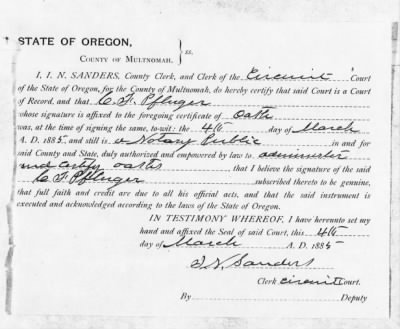 STATE OF OREGON,
COUNTY OF MULTNOMAH. } ss.
I, I. N. SANDERS, County Clerk, and Clerk of the Circuit Court
of the State of Oregon, for the County of Multnomah, do hereby certify that said Court is a Court
of Record, and that C. F. Pfluger
whose signature is affixed to the foregoing certificate of oath
was, at the time of signing the same, to-wit: the 4th day of March
A. D. 1885, and still is a Notary Public in and for
said County and State, duly authorized and empowered by law to administer
and certify oaths, that I believe the signature of the said
C. F. Pfluger subscribed thereto to be genuine,
that full faith and credit are due to all his official acts, and that the said instrument is
executed and acknowledged according to the laws of the State of Oregon.
IN TESTIMONY WHEREOF, I have hereunto set my
hand and affixed the Seal of said Court, this 4th
day of March A. D. 1885
I. N. Sanders
Clerk circuit Court.
By Deputy